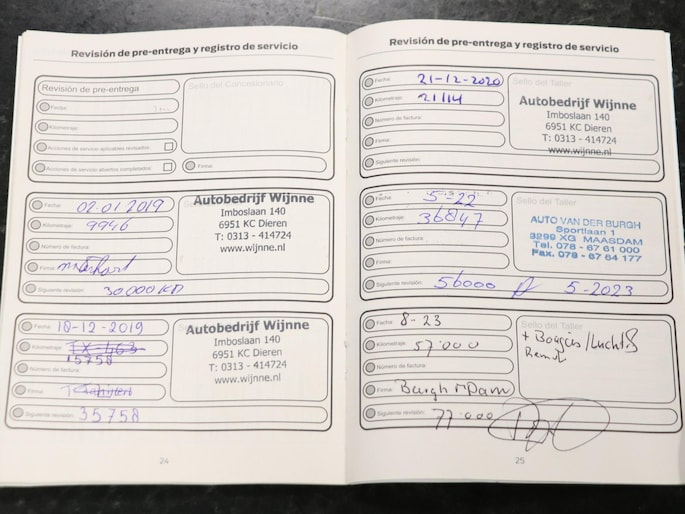 Revisión de pre-entrega y registro de servicio
Revisión de pre-entrega
Fecha:
Kilometraje:
Acciones de servicio aplicantes revisados:
Acciones de servicio abiertos completados:
Sello del Concesionario
Firma:
Fecha: 02-01-2019
Kilometraje: 9946
Número de factura:
Firma:
Siguiente revisión: 30.000 KM
Autobedrijf Wijnne
Imboslaan 140
6951 KC Dieren
T: 0313 - 414724
www.wijnne.nl
Fecha: 10-12-2019
Kilometraje:
15758
Número de factura:
Firma:
Siguiente revisión: 35758
Autobedrijf Wijnne
Imboslaan 140
6951 KC Dieren
T: 0313 - 414724
www.wijnne.nl
24
Revisión de pre-entrega y registro de servicio
Fecha: 21-12-2020
Kilometraje: 21114
Número de factura:
Firma:
Siguiente revisión:
Sello del Taller
Autobedrijf Wijnne
Imboslaan 140
6951 KC Dieren
T: 0313 - 414724
www.wijnne.nl
Fecha: 5-22
Kilometraje: 36847
Número de factura:
Firma:
Siguiente revisión: 56000 5-2023
Sello del Taller
AUTO VAN DER BURGH
Sportlaan 1
3299 XG MAASDAM
Tel. 078 - 67 61 000
Fax. 078 - 67 64 177
Fecha: 8-23
Kilometraje: 57.000
Número de factura:
Firma: Burgh
Siguiente revisión: 77.000
Sello del Taller
+ Bougies/Lucht
25